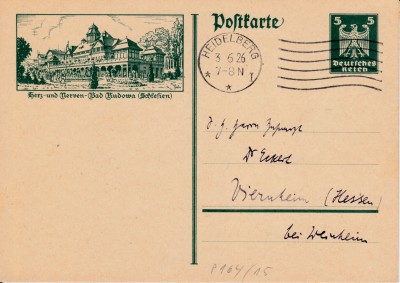 Postkarte
5 5
Deutsches
Reich
HEIDELBERG
3.6.26
7-8 N
* T
Herz- und Nerven-Bad Kudowa (Schlesien)
Herrn
Dr Eckert
Viernheim (Hessen)
bei Weinheim
P164/25